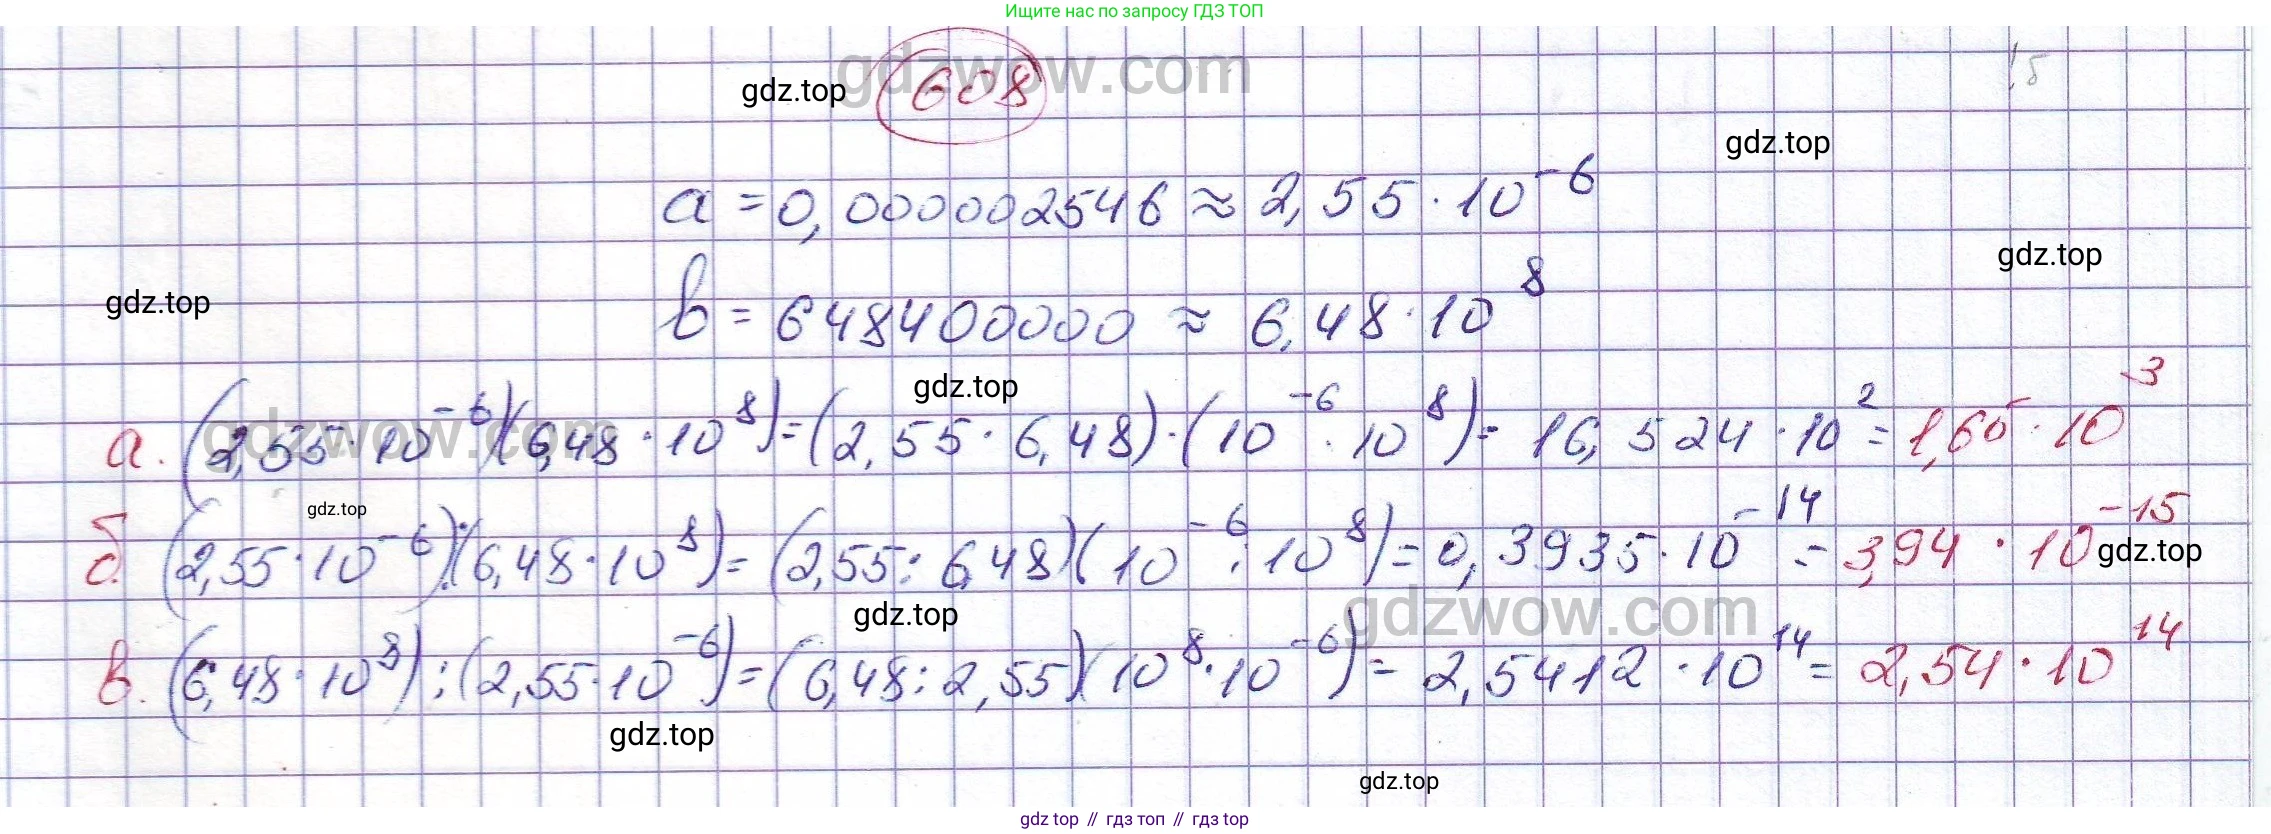 Ищите нас по запросу ГДЗ ТОП
gdzwow.com
gdz.top 608
gdz.top
a = 0,000002546 ≈ 2,55 · 10⁻⁶
gdz.top
gdz.top
b = 648400000 ≈ 6,48 · 10⁸
gdz.top
gdzwow.com
а. (2,55 · 10⁻⁶)(6,48 · 10⁸) = (2,55 · 6,48) · (10⁻⁶ · 10⁸) = 16,524 · 10² = 1,65 · 10³
gdz.top
б. (2,55 · 10⁻⁶) : (6,48 · 10⁸) = (2,55 : 6,48)(10⁻⁶ : 10⁸) = 0,3935 · 10⁻¹⁴ = 3,94 · 10⁻¹⁵
gdz.top
gdz.top
gdzwow.com
в. (6,48 · 10⁸) : (2,55 · 10⁻⁶) = (6,48 : 2,55)(10⁸ · 10⁻⁶) = 2,5412 · 10¹⁴ = 2,54 · 10¹⁴
gdz.top
gdz.top
gdz top // гдз топ // гдз top